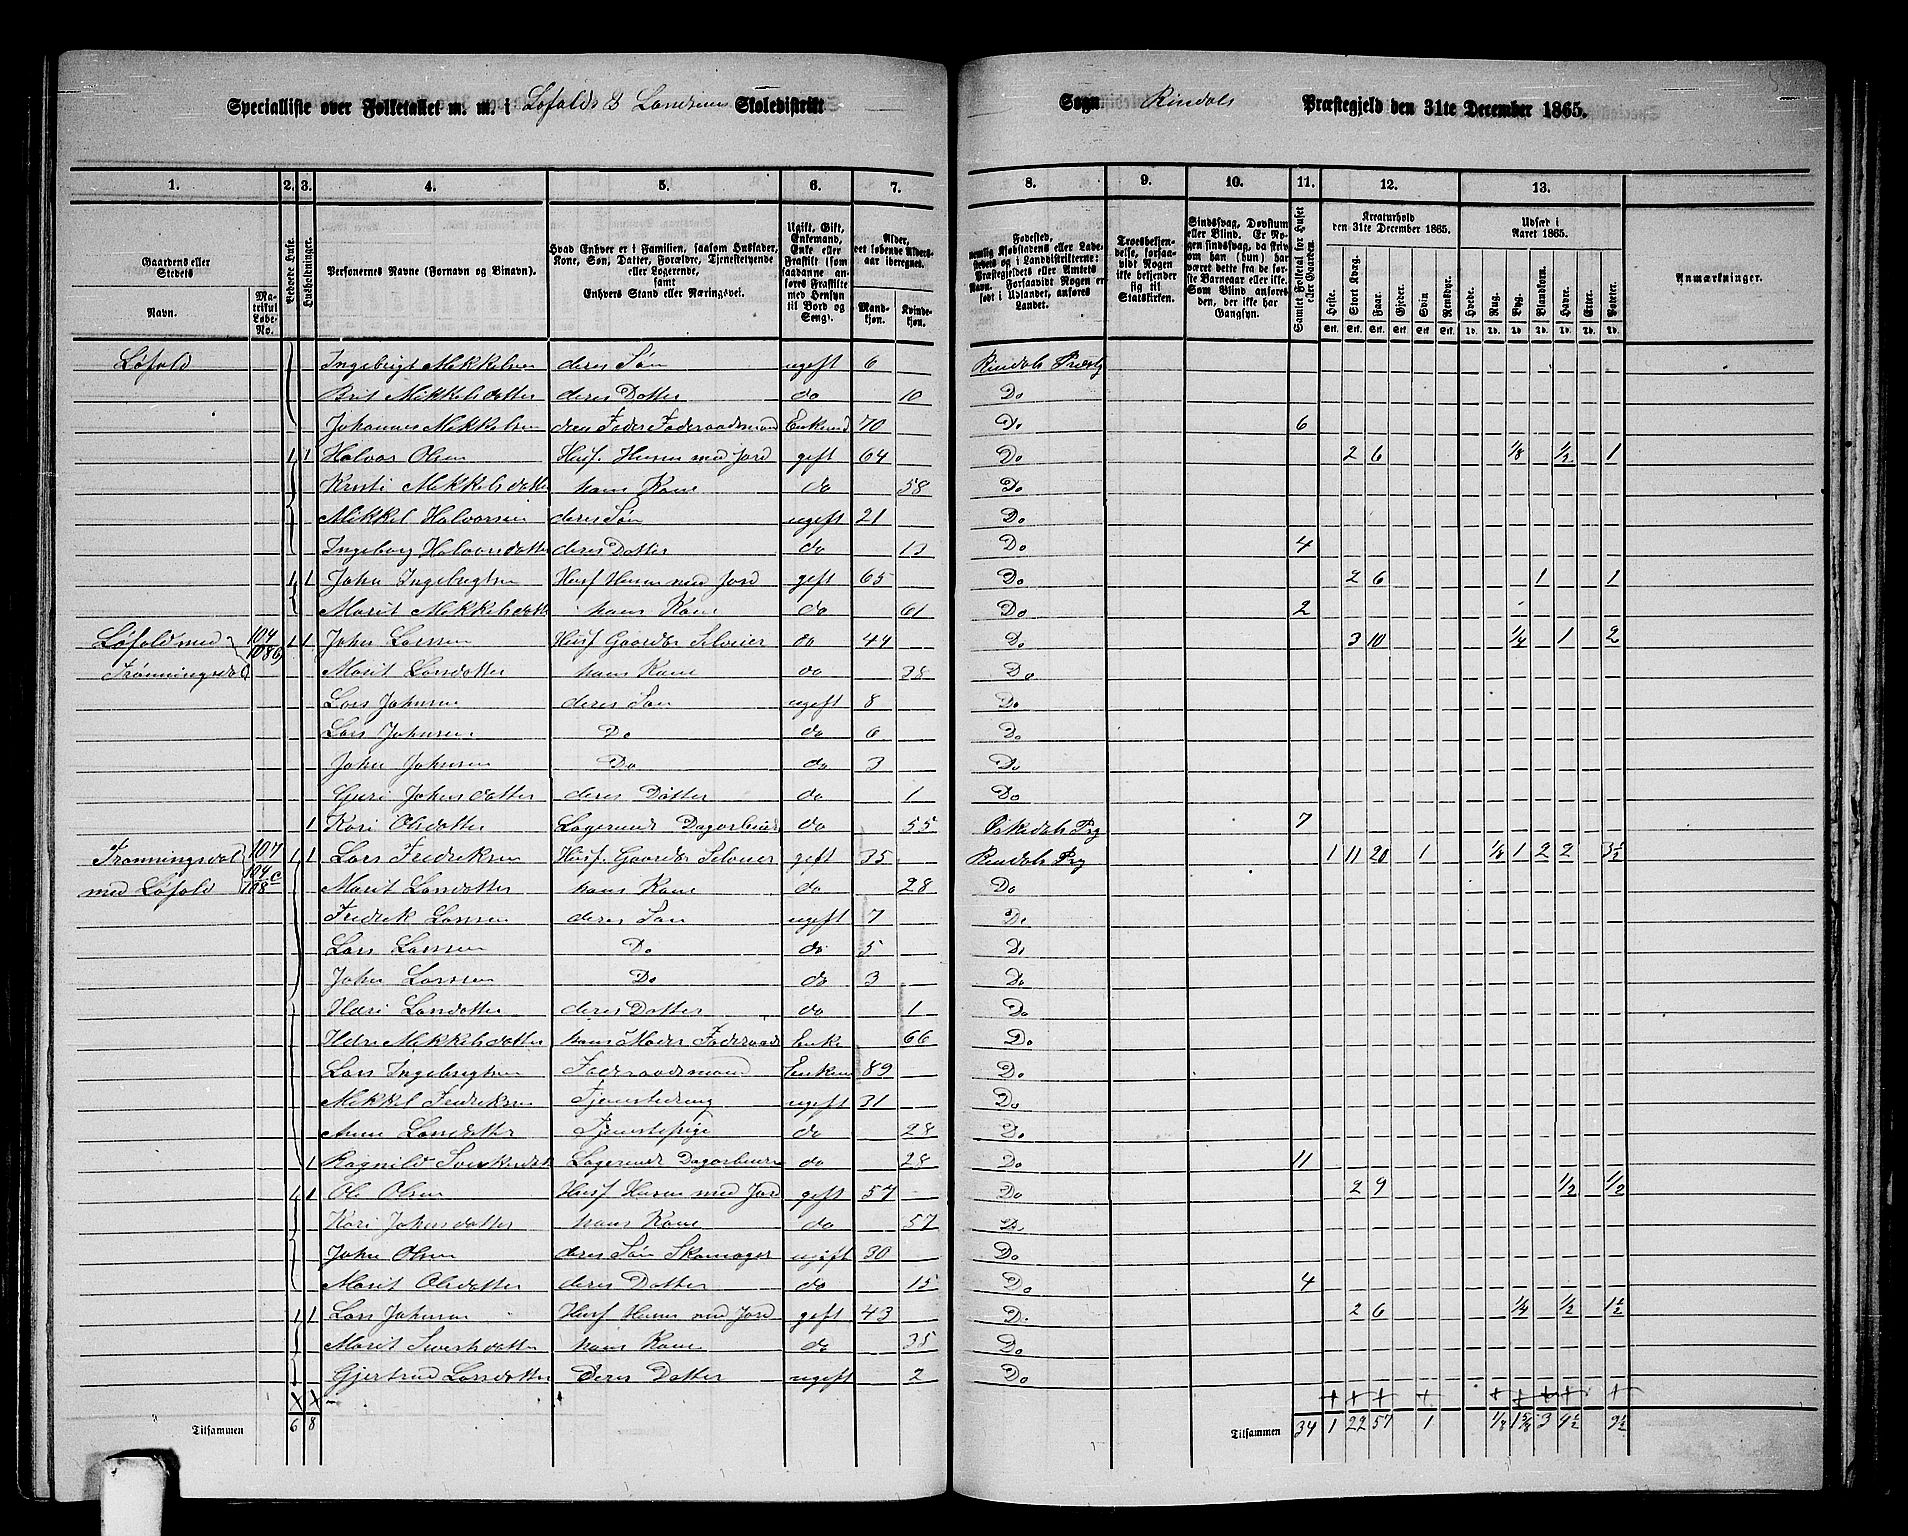 Specialliste over Folketallet m. m. i Løfolds & Landsems Skoledistrikt Sogn Rindals Præstegjeld den 31te December 1865.
1. 2. 3. 4. 5. 6. 7. 8. 9. 10. 11. 12. 13.
Gaardens eller Stedets
Navn.
Matrikul Løbe-No.
Beboede Huse.
Husholdninger.
Personernes Navne (Fornavn og Binavn).
Hvad Enhver er i Familien, saasom Husfader, Kone, Søn, Datter, Forældre, Tjenestetyende eller Logerende, samt Enhvers Stand eller Næringsvei.
Ugift, Gift, Enkemand, Enke eller Fraskilt (som saadanne anføres Fraskilte med Hensyn til Bord og Seng).
Alder, det løbende Alders-aar iberegnet.
Mandkjøn.
Kvindekjøn.
Fødested, nemlig Kjøbstadens eller Ladestedets og i Landdistrikterne: Præstegjeldets eller Amtets Navn. Forsaavidt Nogen er født i Udlandet, anføres Landet.
Troesbekjendelse, forsaavidt Nogen ikke bekjender sig til Statskirken.
Sindssvag, Døvstum eller Blind. Er Nogen sindssvag, da Priv om han (hun) har været dette fra de første Barneaar eller ikke. Som Blind anføres den, der ikke har Gangsyn.
Samlet Folketal for Huset eller Gaarden.
Kreaturhold den 31te December 1865.
Heste. Stort Kvæg. Faar. Gjeder. Svin Rensdyr.
Udsæd i Aaret 1865.
Hvede. Rug. Byg. Blandkorn. Havre. Erter. Poteter.
Anmærkninger.
Løfold Ingebrigt Mikkelsen deres Søn ugift 6 Rindals Præstg
Brit Mikkelsdatter deres Datter do 10 Do
Johannes Mikkelsen dres Fader Føderaadsmand Enkemd 70 Do 6
1 1 Halvor Olsen Husf. Husm med Jord gift 64 Do 2 6 1/8 1/2 1
Kristi Mikkelsdatter hans Kone do 58 Do
Mikkel Halvorsen deres Søn ugift 21 Do
Ingeborg Halvorsdatter deres Datter do 12 Do 4
1 1 John Ingebrigtsen Husf Husm med Jord gift 65 Do 2 6 1 1
Marit Mikkelsdatter hans Kone do 61 Do 2
Løfold med 104 1 1 John Larsen Husf Gaardbr Selveier do 44 Do 3 10 1/4 1 2
Trønningsdal 108b Marit Larsdatter hans Kone do 38 Do
Lars Johnsen deres Søn ugift 8 Do
Lars Johnsen Do do 6 Do
John Johnsen Do do 3 Do
Guri Johnsdatter deres Datter do 1 Do
1 Kari Olsdatter Logerende Dagarbeider do 55 Ørkedals Pg 7
Trønningsdal 107 1 1 Lars Fredriksen Husf. Gaardbr Selveier gift 35 Rindals Pg 1 11 20 1 1/8 1 2 2 3 1/2
med Løfold 104c 108 Marit Larsdatter hans Kone do 28 Do
Fredrik Larsen deres Søn ugift 7 Do
Lars Larsen Do do 5 Do
John Larsen Do do 3 Do
Ildri Larsdatter deres Datter do 1 Do
Ildri Mikkelsdatter hans Moder Føderaad Enke 66 Do
Lars Ingebrigtsen Føderaadsmand Enkem 89 Do
Mikkel Fredriksen Tjenestedreng ugift 31 Do
Anne Larsdatter Tjenestepige do 28 Do
1 Ragnild Sverkesdatt Logerende Dagarbeider do 28 Do 11
1 1 Ole Olsen Husf Husm med Jord gift 57 Do 2 9 1/2 1/2
Kari Johnsdatter hans Kone do 57 Do
John Olsen deres Søn Skomager ugift 30 Do
Marit Olsdatter deres Datter do 15 Do 4
1 1 Lars Johnsen Husf Husm med Jord gift 43 Do 2 6 1/8 1/2 1 1/2
Marit Siverts datter hans Kone do 35 Do
Gjertrud Larsdatter deres Datter ugift 2 Do
Tilsammen 6 8 Tilsammen 34 1 22 57 1 1/8 1 5/8 3 4 1/2 9 1/2